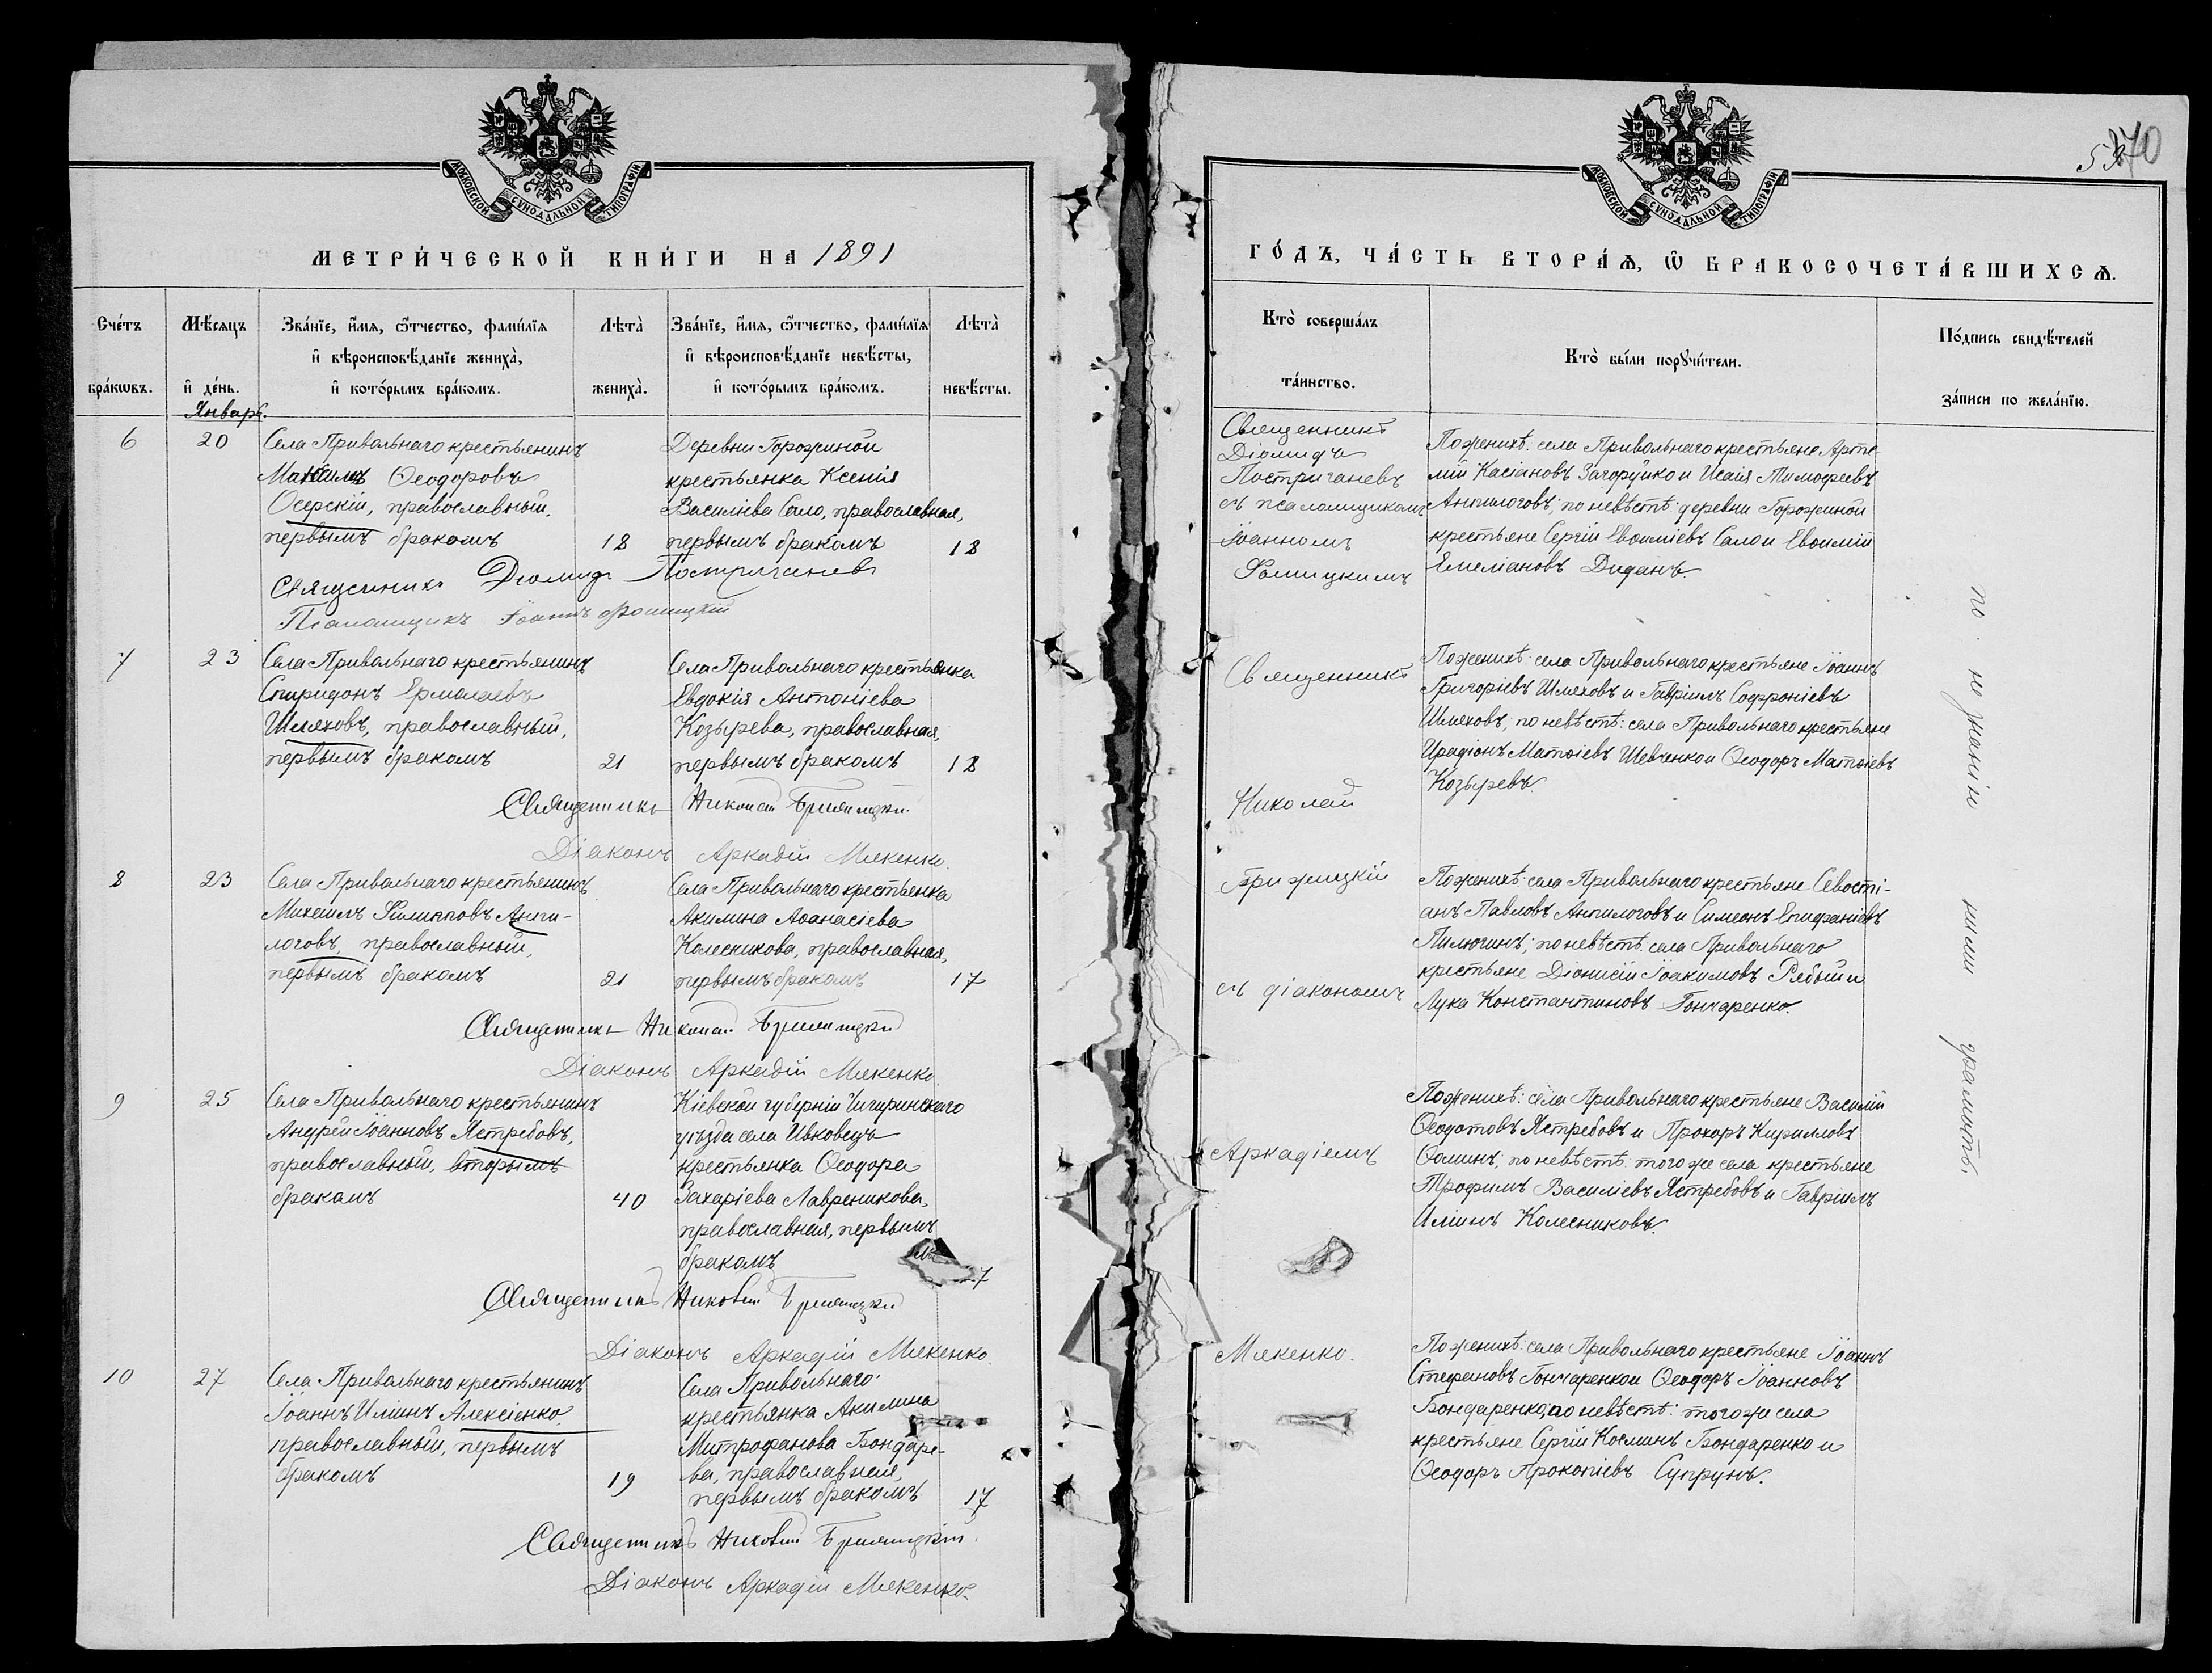 МОСКОВСКОЙ СѴНОДАЛЬНОЙ ТИПОГРАФІИ
МЕТРИ́ЧЕСКОЙ КНИ́ГИ НА 1891
Счéтъ бра́кѡвъ.
Мѣ́сяцъ и҆ де́нь.
Зва́нїе, и҆́мѧ, ѻ҆́тчество, фами́лїѧ и҆ вѣроисповѣ́данїе жениха̀, и҆ кото́рымъ бра́комъ.
Лѣта̀ жениха̀.
Зва́нїе, и҆́мѧ, ѻ҆́тчество, фами́лїѧ и҆ вѣроисповѣ́данїе невѣ́сты, и҆ кото́рымъ бра́комъ.
Лѣта̀ невѣ́сты.
Январь.
6
20
Села Привольнаго крестьянинъ
Ѳеодоровъ
Озерскій, православный,
первымъ бракомъ
18
Деревни Горожиной
крестьянка Ксенія
Василіева Сало, православная,
первымъ бракомъ
18
Священникъ Діомидъ Постригачевъ
Псаломщикъ Іоаннъ Фомицкій
7
23
Села Привольнаго крестьянинъ
Спиридонъ Ермолаевъ
Шляховъ, православный,
первымъ бракомъ
21
Села Привольнаго крестьянка
Евдокія Антоніева
Козырева, православная,
первымъ бракомъ
18
Священникъ Николай Брижицкій
Діаконъ Аркадій Мякенко.
8
23
Села Привольнаго крестьянинъ
Михаилъ Филипповъ Анпи-
логовъ, православный,
первымъ бракомъ
21
Села Привольнаго крестьянка
Акилина Аѳанасіева
Колесникова, православная,
первымъ бракомъ
17
Священникъ Николай Брижицкій
Діаконъ Аркадій Мякенко
9
25
Села Привольнаго крестьянинъ
Андрей Іоанновъ Ястребовъ,
православный, вторымъ
бракомъ
40
Кіевской губерніи Чигиринскаго
уѣзда села Ивковецъ
крестьянка Ѳеодора
Захаріева Лавреникова,
православная, первымъ
бракомъ
7
Священникъ Николай Брижицкій
Діаконъ Аркадій Мякенко.
10
27
Села Привольнаго крестьянинъ
Іоаннъ Иліинъ Алексіенко,
православный, первымъ
бракомъ
19
Села Привольнаго
крестьянка Акилина
Митрофанова Бондаре-
ва, православная,
первымъ бракомъ
17
Священникъ Николай Брижицкій.
Діаконъ Аркадій Мякенко.
70
МОСКОВСКОЙ СѴНОДАЛЬНОЙ ТИПОГРАФІИ
ГО́ДЪ, ЧА́СТЬ ВТОРА́Ѧ, Ѽ БРАКОСОЧЕТА́ВШИХСѦ.
Кто̀ соверша́лъ та́инство.
Кто̀ бы́ли порꙋчи́тели.
По́дпись свидѣ́телей за́писи по жела́нїю.
Священникъ
Діомидъ
Постригачевъ
съ псаломщикомъ
Іоанномъ
Фомицкимъ
По женихѣ: села Привольнаго крестьяне Арте-
мій Касіановъ Загоруйко и Исаія Тимоѳеевъ
Анпилоговъ; по невѣстѣ: деревни Горожиной
крестьяне Сергій Евѳиміевъ Сало и Евѳимій
Емеліановъ Диданъ.
Священникъ
По женихѣ: села Привольнаго крестьяне Іоаннъ
Григоріевъ Шляховъ и Гавріилъ Софроніевъ
Шляховъ, по невѣстѣ: села Привольнаго крестьяне
Иродіонъ Матѳіевъ Шевченко и Ѳеодоръ Матѳіевъ
Козыревъ.
Николай
Брижицкій
По женихѣ: села Привольнаго крестьяне Севасті-
анъ Павловъ Анпилоговъ и Симеонъ Епифаніевъ
Пилюгинъ; по невѣстѣ: села Привольнаго
крестьяне Діонисій Іоакимовъ Рябый и
Лука Константиновъ Гончаренко.
съ діакономъ
Аркадіемъ
По женихѣ: села Привольнаго крестьяне Василій
Ѳеодотовъ Ястребовъ и Прохоръ Кирилловъ
Ѳоминъ; по невѣстѣ: того же села крестьяне
Трофимъ Василіевъ Ястребовъ и Гавріилъ
Иліинъ Колесниковъ.
Мякенко.
По женихѣ: села Привольнаго крестьяне Іоаннъ
Стефановъ Гончаренко и Ѳеодоръ Іоанновъ
Бондаренко; по невѣстѣ: того же села
крестьяне Сергій Косминъ Бондаренко и
Ѳеодоръ Прокопіевъ Супрунъ.
по незнанію ими грамоты.